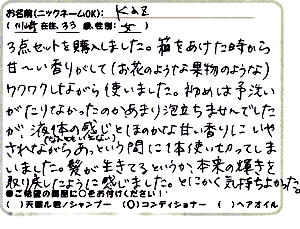 お名前(ニックネームOK): Kaz
(川崎在住、33歳、性別: 女)
3点セットを購入しました。箱をあけた時から
甘〜い香りがして(お花のような果物のような)
ワクワクしながら使いました。初めは予洗い
がたりなかったのかあまり泡立ちませんでした
が、液体の感じとほのかな甘い香りにいや
されながらあっという間に1本使い切ってしま
いました。髪が生きてるというか、本来の輝きを
取り戻したように感じました。とにかく気持ちよかった。
●ご希望の商品に○をお付けください!
( )天然ル君/シャンプー (○)コンディショナー ( )ヘアオイル